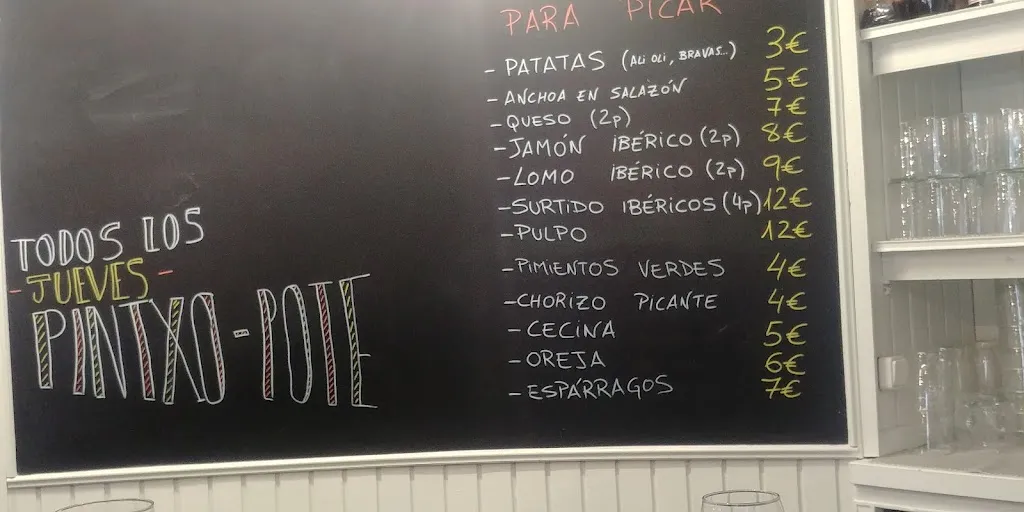 TODOS LOS
- JUEVES -
PINTXO-POTE
PARA PICAR
- PATATAS (ALI OLI, BRAVAS...) 3€
- ANCHOA EN SALAZÓN 5€
- QUESO (2p) 7€
- JAMÓN IBÉRICO (2p) 8€
- LOMO IBÉRICO (2p) 9€
- SURTIDO IBÉRICOS (4p) 12€
- PULPO 12€
- PIMIENTOS VERDES 4€
- CHORIZO PICANTE 4€
- CECINA 5€
- OREJA 6€
- ESPÁRRAGOS 7€